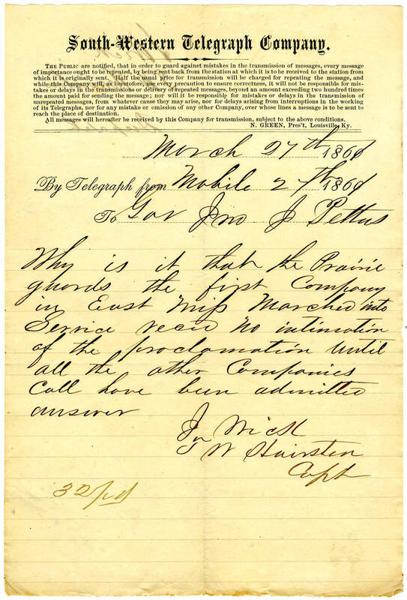 South-Western Telegraph Company.
THE PUBLIC are notified, that in order to guard against mistakes in the transmission of messages, every message
of importance ought to be repeated, by being sent back from the station at which it is to be received to the station from
which it is originally sent. Half the usual price for transmission will be charged for repeating the message, and
while this Company will, as heretofore, use every precaution to ensure correctness, it will not be responsible for mis-
takes or delays in the transmission or delivery of repeated messages, beyond an amount exceeding two hundred times
the amount paid for sending the message; nor will it be responsible for mistakes or delays in the transmission of
unrepeated messages, from whatever cause they may arise, nor for delays arising from interruptions in the working
of its Telegraphs, nor for any mistake or omission of any other Company, over whose lines a message is to be sent to
reach the place of destination.
All messages will hereafter be received by this Company for transmission, subject to the above conditions.
N. GREEN, Pres't, Louisville, Ky.
March 27th 1861
By Telegraph from Mobile 27th 1861
To Gov Jno J Pettus
Why is it that the Prairie
guards the first Company
in East Miss Marched into
Service recd no intimation
of the proclamation until
all the other Companies
Call have been admitted
answer
T W Hairston
Capt
32 pd